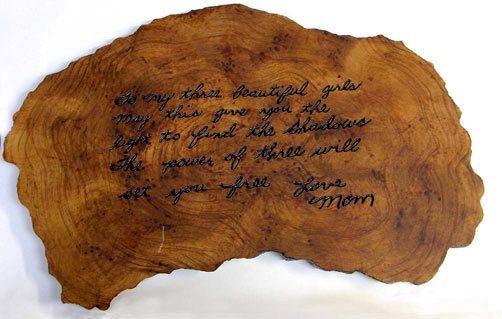 To my three beautiful girls
may this give you the
light to find the Shadows
The power of three will
set you free Love
Mom